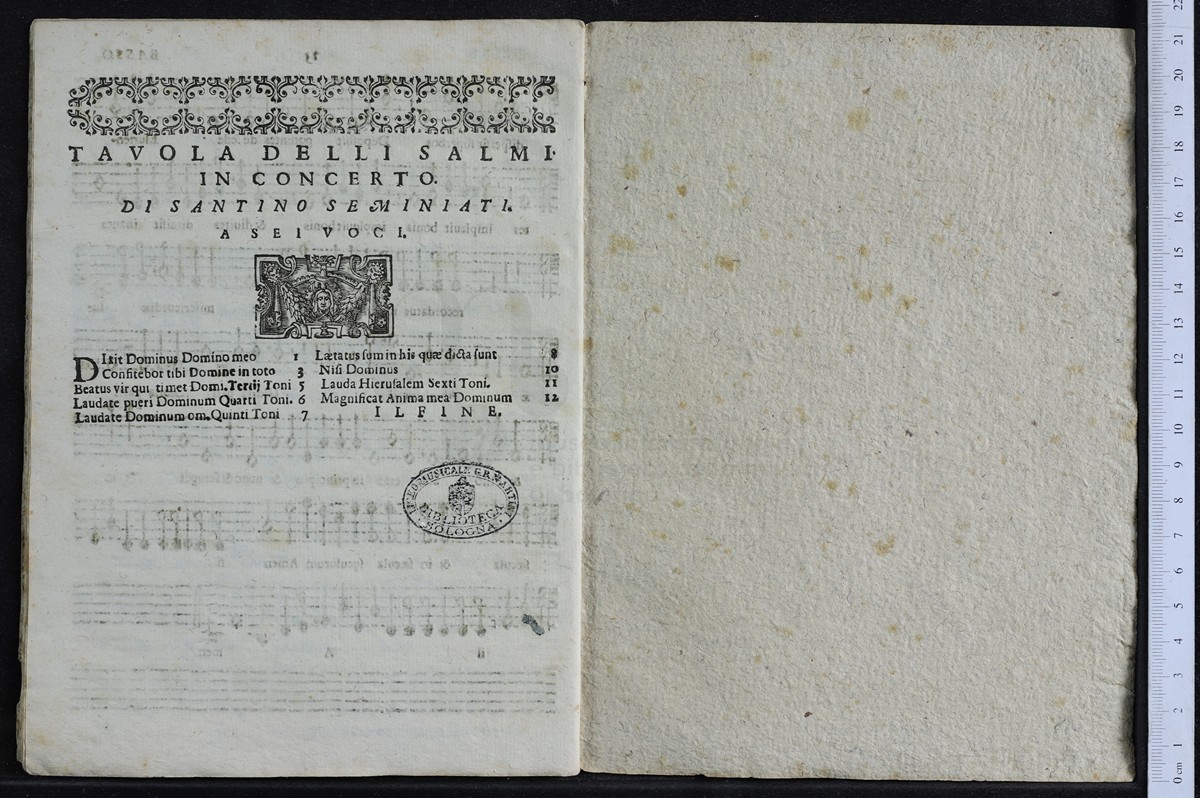 TAVOLA DELLI SALMI
IN CONCERTO.
DI SANTINO SEMINIATI.
A SEI VOCI.
DIxit Dominus Domino meo 1
Confitebor tibi Domine in toto 3
Beatus vir qui timet Domi. Tertij Toni 5
Laudate pueri Dominum Quarti Toni. 6
Laudate Dominum om. Quinti Toni 7
Lætatus sum in his quæ dicta sunt 8
Nisi Dominus 10
Lauda Hierusalem Sexti Toni. 11
Magnificat Anima mea Dominum 12
IL FINE.
MUSICALE G.B. MARTINI
BIBLIOTECA
BOLOGNA
22
21
20
19
18
17
16
15
14
13
12
11
10
9
8
7
6
5
4
3
2
1
0 cm